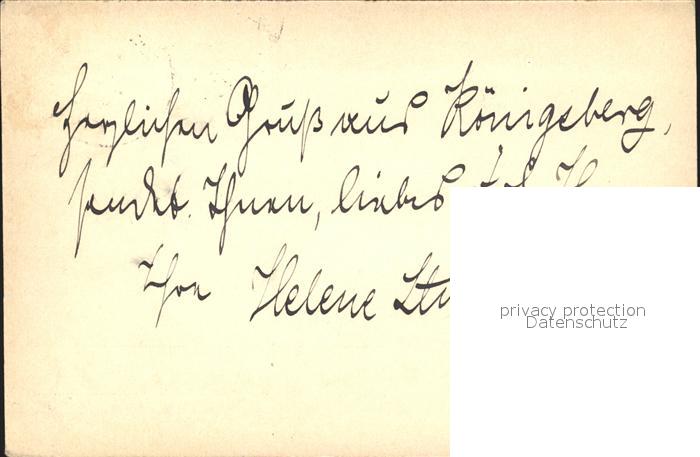 Herzlichen Gruß aus Königsberg,
sendet Ihnen, liebes Frl. H
Ihre Helene Stu
privacy protection
Datenschutz